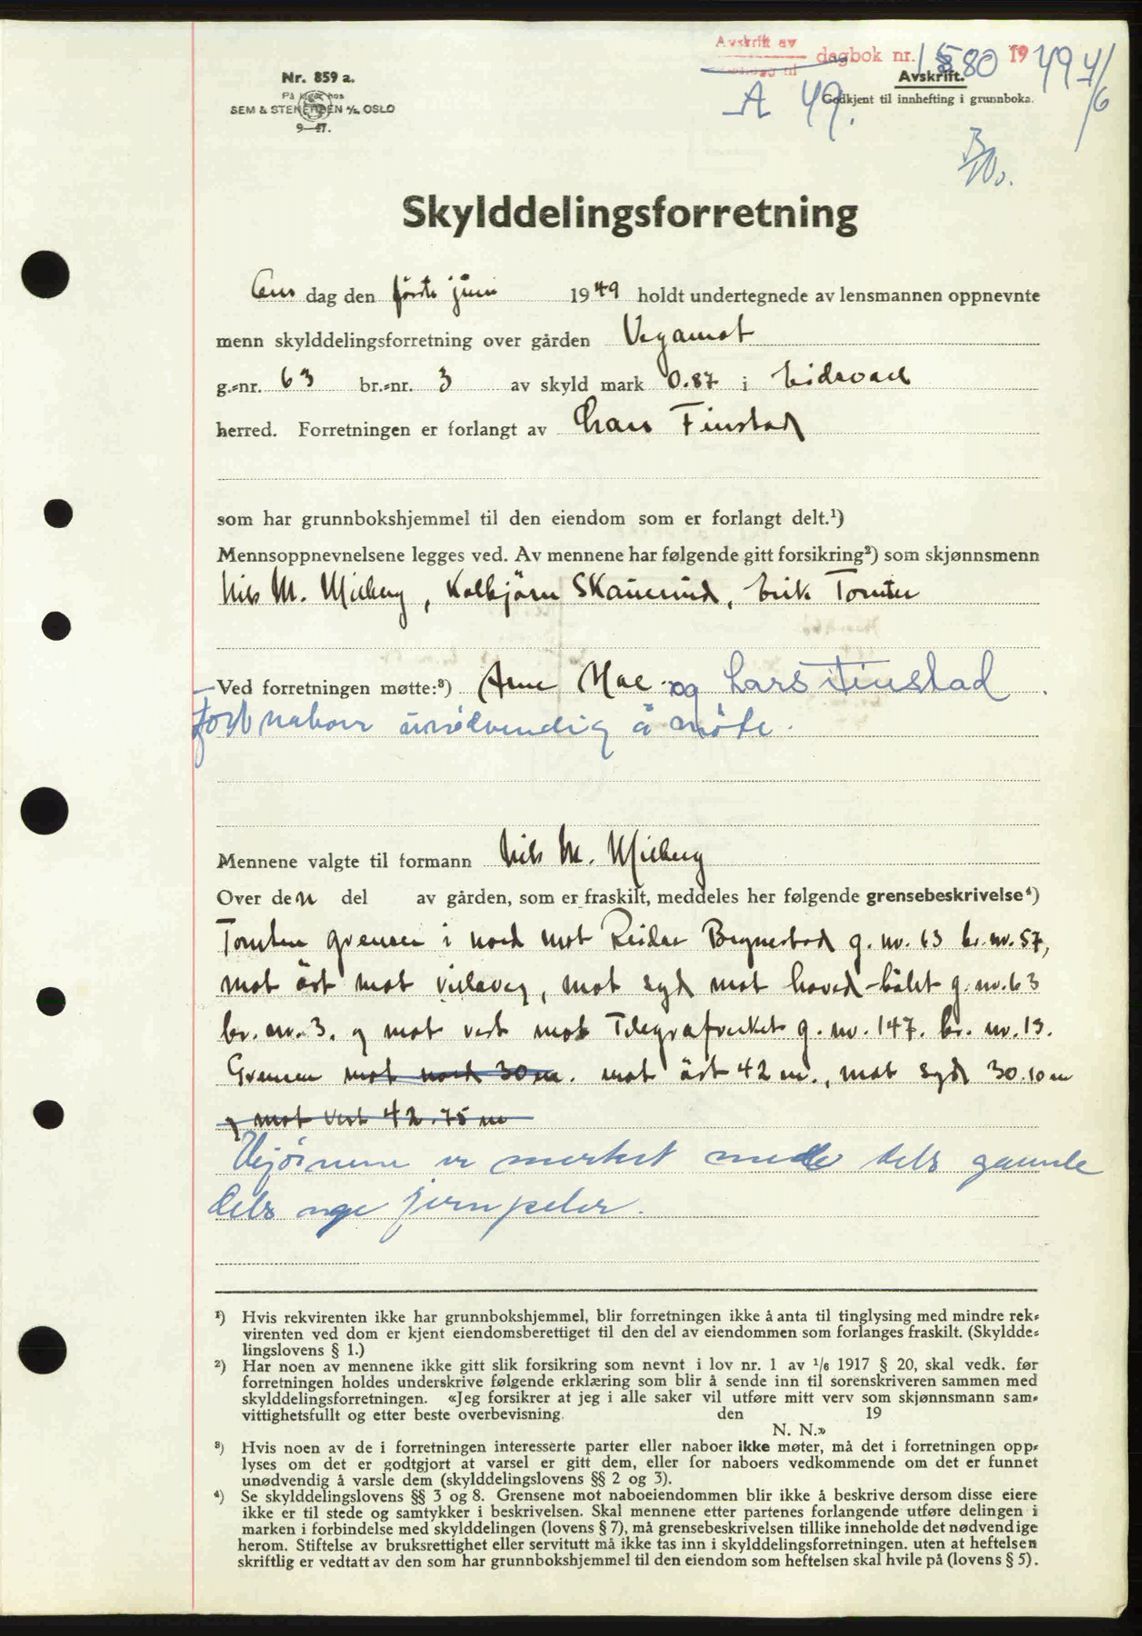 Avskrift av dagbok nr. 1580 1949 4/6
Nr. 859 a.
Avskrift.
På lager hos
A 49.
Godkjent til innhefting i grunnboka.
SEM & STENERSEN A/S, OSLO
9-47.
Skylddelingsforretning
dag den første juni 1949 holdt undertegnede av lensmannen oppnevnte
menn skylddelingsforretning over gården Vegamot
g.-nr. 63 br.-nr. 3 av skyld mark 0.87 i Eidsvoll
herred. Forretningen er forlangt av Lars Finstad
som har grunnbokshjemmel til den eiendom som er forlangt delt.¹)
Mennsoppnevnelsene legges ved. Av mennene har følgende gitt forsikring²) som skjønnsmenn
Nils M. Mieberg, Kolbjörn Skauerud, Erik Tomter
Ved forretningen møtte:³) Arne Hol og Lars Finstad.
naboer unødvendig å møte.
Mennene valgte til formann Nils M. Mieberg
Over den del av gården, som er fraskilt, meddeles her følgende grensebeskrivelse⁴)
Tomten grenser i nord mot Reidar Bognestad g. nr. 63 br. nr. 57,
mot öst mot veg, mot syd mot hoved-bölet g. nr. 63
br. nr. 3. og mot vest mot Telegrafverket g. nr. 147. br. nr. 13.
Grensen mot nord 30 m. mot öst 42 m., mot syd 30.10 m
og mot vest 42.75 m
Hjørnene er merket med dels gamle
dels nye jernpeler.
¹) Hvis rekvirenten ikke har grunnbokshjemmel, blir forretningen ikke å anta til tinglysing med mindre rek-
virenten ved dom er kjent eiendomsberettiget til den del av eiendommen som forlanges fraskilt. (Skyldde-
lingslovens § 1.)
²) Har noen av mennene ikke gitt slik forsikring som nevnt i lov nr. 1 av 1/6 1917 § 20, skal vedk. før
forretningen holdes underskrive følgende erklæring som blir å sende inn til sorenskriveren sammen med
skylddelingsforretningen. «Jeg forsikrer at jeg i alle saker vil utføre mitt verv som skjønnsmann sam-
vittighetsfullt og etter beste overbevisning. den 19
N. N.»
³) Hvis noen av de i forretningen interesserte parter eller naboer ikke møter, må det i forretningen opp-
lyses om det er godtgjort at varsel er gitt dem, eller for naboers vedkommende om det er funnet
unødvendig å varsle dem (skylddelingslovens §§ 2 og 3).
⁴) Se skylddelingslovens §§ 3 og 8. Grensene mot naboeiendommen blir ikke å beskrive dersom disse eiere
ikke er til stede og samtykker i beskrivelsen. Skal mennene etter partenes forlangende utføre delingen i
marken i forbindelse med skylddelingen (lovens § 7), må grensebeskrivelsen tillike inneholde det nødvendige
herom. Stiftelse av bruksrettighet eller servitutt må ikke tas inn i skylddelingsforretningen. uten at heftelsen
skriftlig er vedtatt av den som har grunnbokshjemmel til den eiendom som heftelsen skal hvile på (lovens § 5).